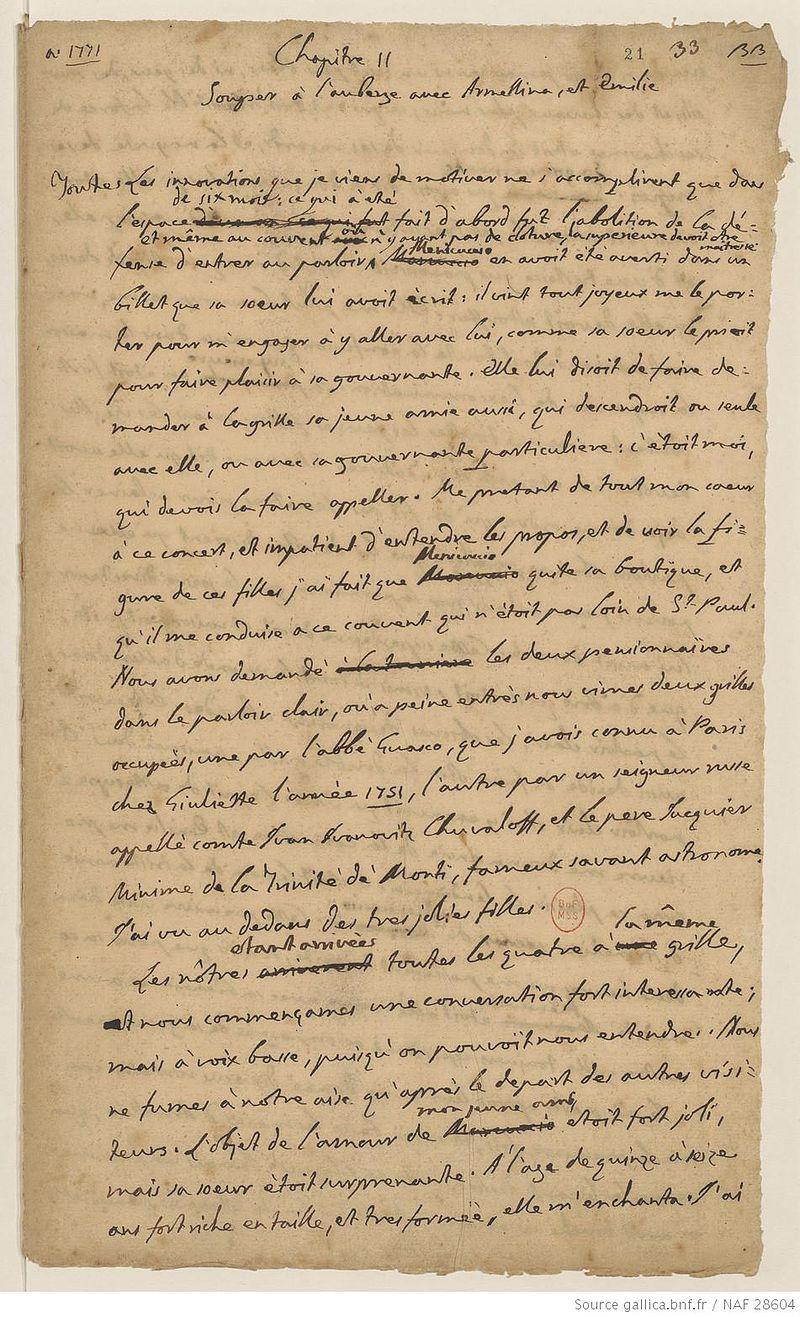 a: 1771
Chapitre II
21 33 BB
Souper à l'auberge avec Armellina, et Emilie
Toutes Les innovations que je viens de motiver ne s'accomplirent que dans
de six mois: ce qui a eté
l'espace fait d'abord fut l'abolition de la dé=
et même au couvent où il n'y ayant pas de cloture, la superieure devoit être
maitresse
fense d'entrer au parloir, Menicuccio en avoit été averti dans un
billet que sa soeur lui avoit écrit: il vint tout joyeux me le por=
ter pour m'engager à y aller avec lui, comme sa soeur le prioit
pour faire plaisir à sa gouvernante. Elle lui disoit de faire de=
mander à la grille sa jeune amie aussi, qui descendroit ou seule
avec elle, ou avec sa gouvernante particuliere: c'étoit moi,
qui devois la faire appeller. Me pretant de tout mon coeur
à ce concert, et impatient d'entendre les propos, et de voir la fi=
gure de ces filles j'ai fait que Menicuccio quite sa boutique, et
qu'il me conduise a ce couvent qui n'étoit pas loin de S.t Paul.
Nous avons demandé les deux pensionnaires
dans le parloir clair, où a peine entrés nous vimes deux grilles
occupées, une par l'abbé Guasco, que j'avois connu à Paris
chez Giuliette l'année 1751, l'autre par un seigneur russe
appellé comte Ivan Ivanovitz Chuvaloff, et le pere Jacquier
Minime de la Trinité dé Monti, fameux savant astronome.
J'ai vu au dedans des tres jolies filles.
BnF
MSS
etant arrivées la même
Les nôtres arriverent toutes les quatre à une grille,
et nous commençames une conversation fort interessante;
mais à voix basse, puisqu'on pouvoit nous entendre. Nous
ne fumes à notre aise qu'après le depart des autres visi=
mon jeune ami,
teurs. L'objet de l'amour de etoit fort joli,
mais sa soeur étoit surprenante. A l'age de quinze à seize
ans fort riche en taille, et tres formée, elle m'enchanta. J'ai
Source gallica.bnf.fr / NAF 28604